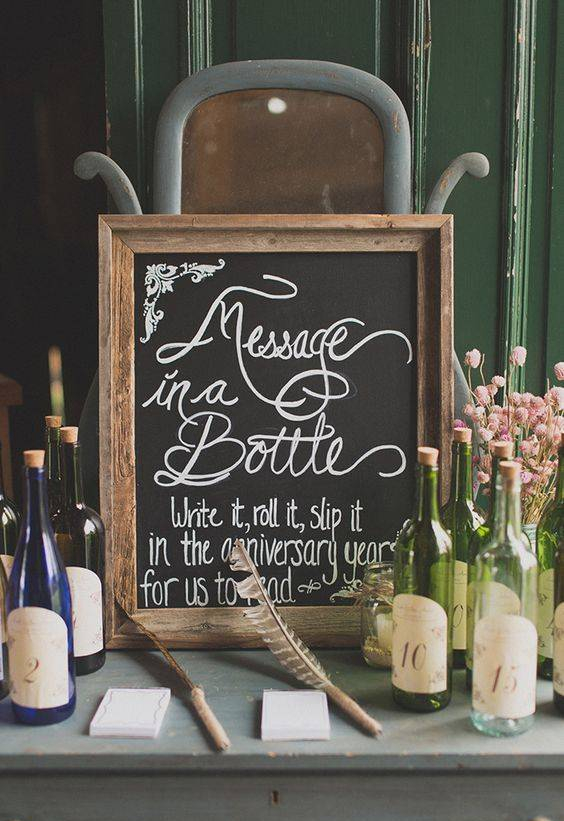 Message
in a
Bottle
Write it, roll it, slip it
in the anniversary years
for us to read
2
10
15